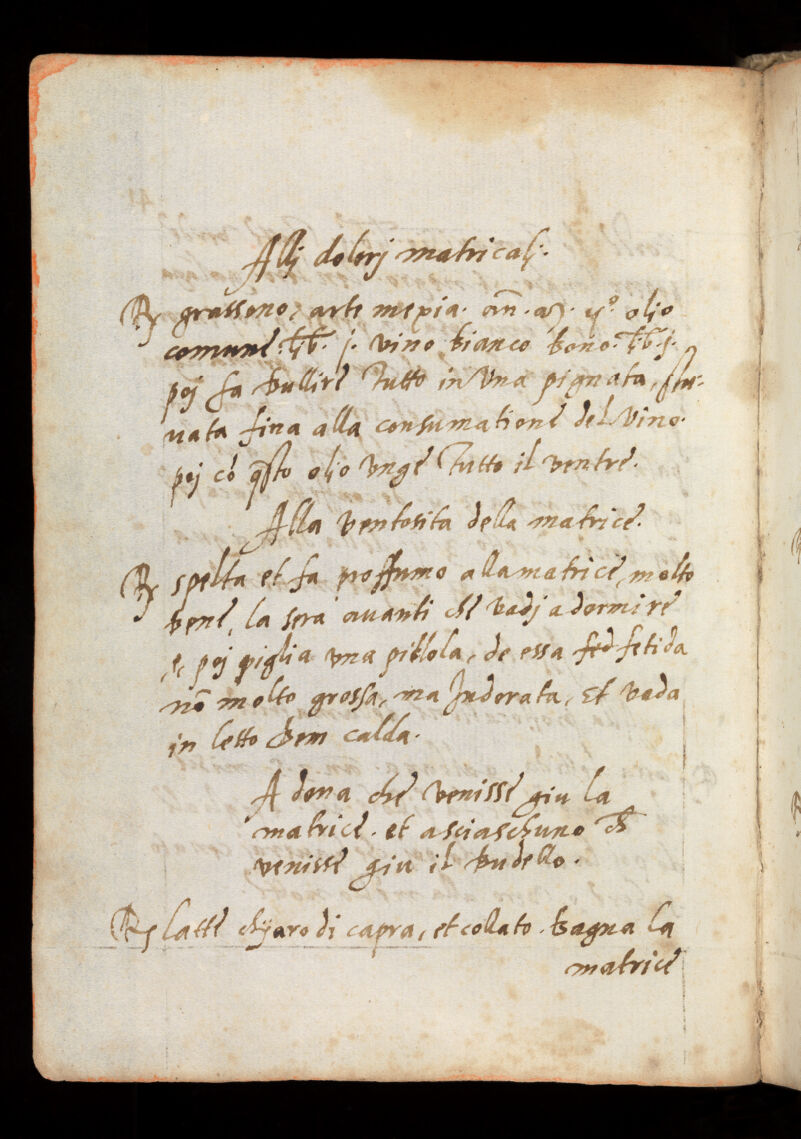 Allj dolorj matricalj.
℞ grassono, arte mexia. añ. olio
comune. lb. j. vino bianco bono. lb. j.
poj fa bullire Tutto in Una pignata, stu-
uata fina alla consumatione del Vino.
poj cō q̄sto olio Unge Tutto il ventre.
Alla ventosita della matrice.
℞ spelta et fa proffumo alla matrice, molto
bene, la sera auanti che vadj a dormire
e, poj piglia una pillola, de essa fetida
nō molto grossa, ma Indorata, Et vada
in letto ben calda.
A dona che venisse giu la
matrice. et a sciaschuno ch̄
venisse giu il budello.
℞ latte chÿaro di capra, et collato. bagna la
matrice